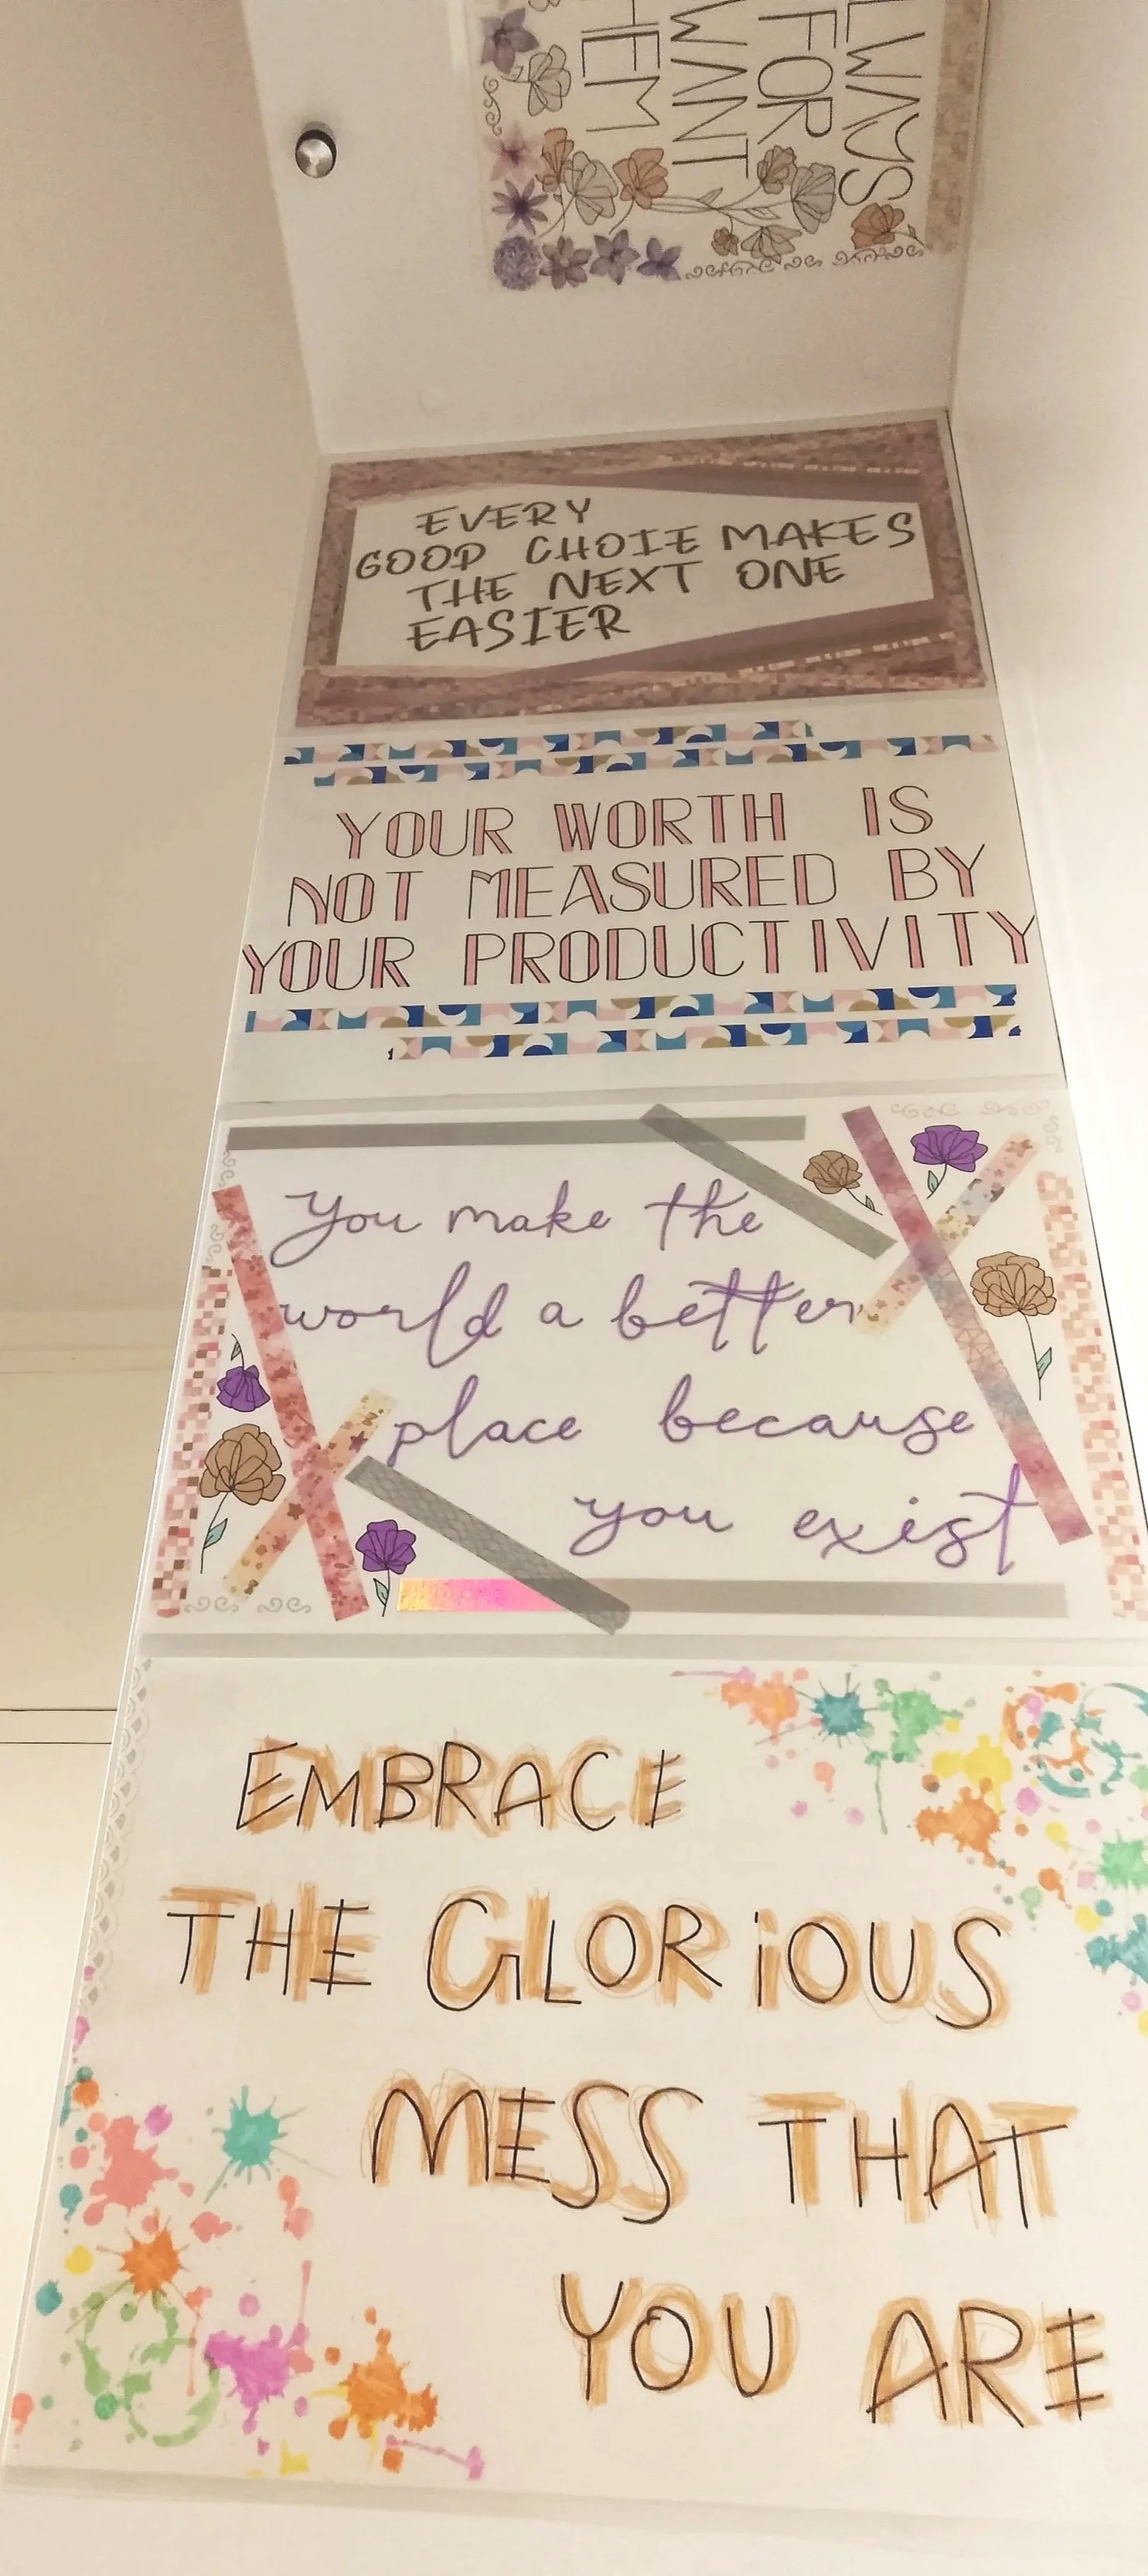 LWAYS
FOR
WANT
HEM
EVERY
GOOD CHOIE MAKES
THE NEXT ONE
EASIER
YOUR WORTH IS
NOT MEASURED BY
YOUR PRODUCTIVITY
You make the
world a better
place because
you exist
EMBRACE
THE GLORiOUS
MESS THAT
YOU ARE